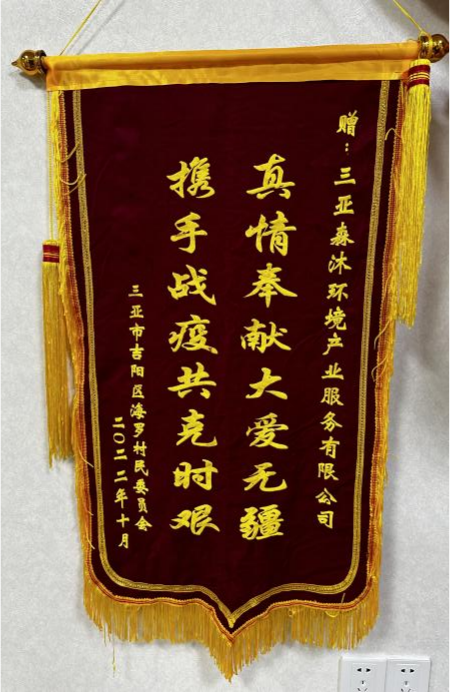 赠：三亚森沐环境产业服务有限公司
真情奉献大爱无疆
携手战疫共克时艰
三亚市吉阳区海罗村民委员会
二〇二二年十月